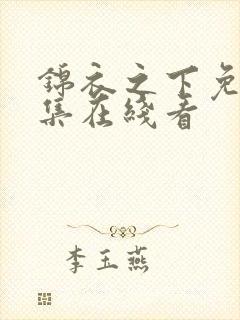 錦衣之下免
集在綫看
李玉燕